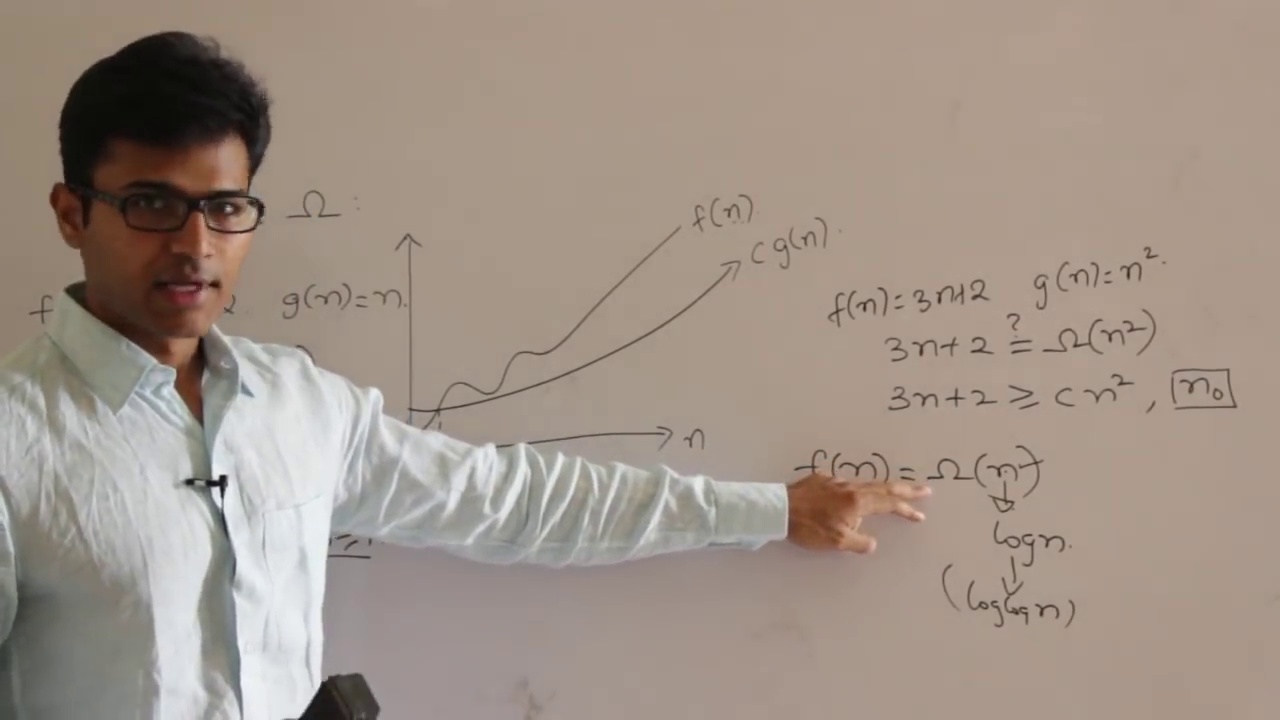 Ω :
f(n)
c g(n).
g(n)=n.
n
f(n)=3n+2 g(n)=n².
3n+2 ≟ Ω(n²)
3n+2 ≥ cn², n₀
f(n) = Ω(n)
logn.
(loglogn)